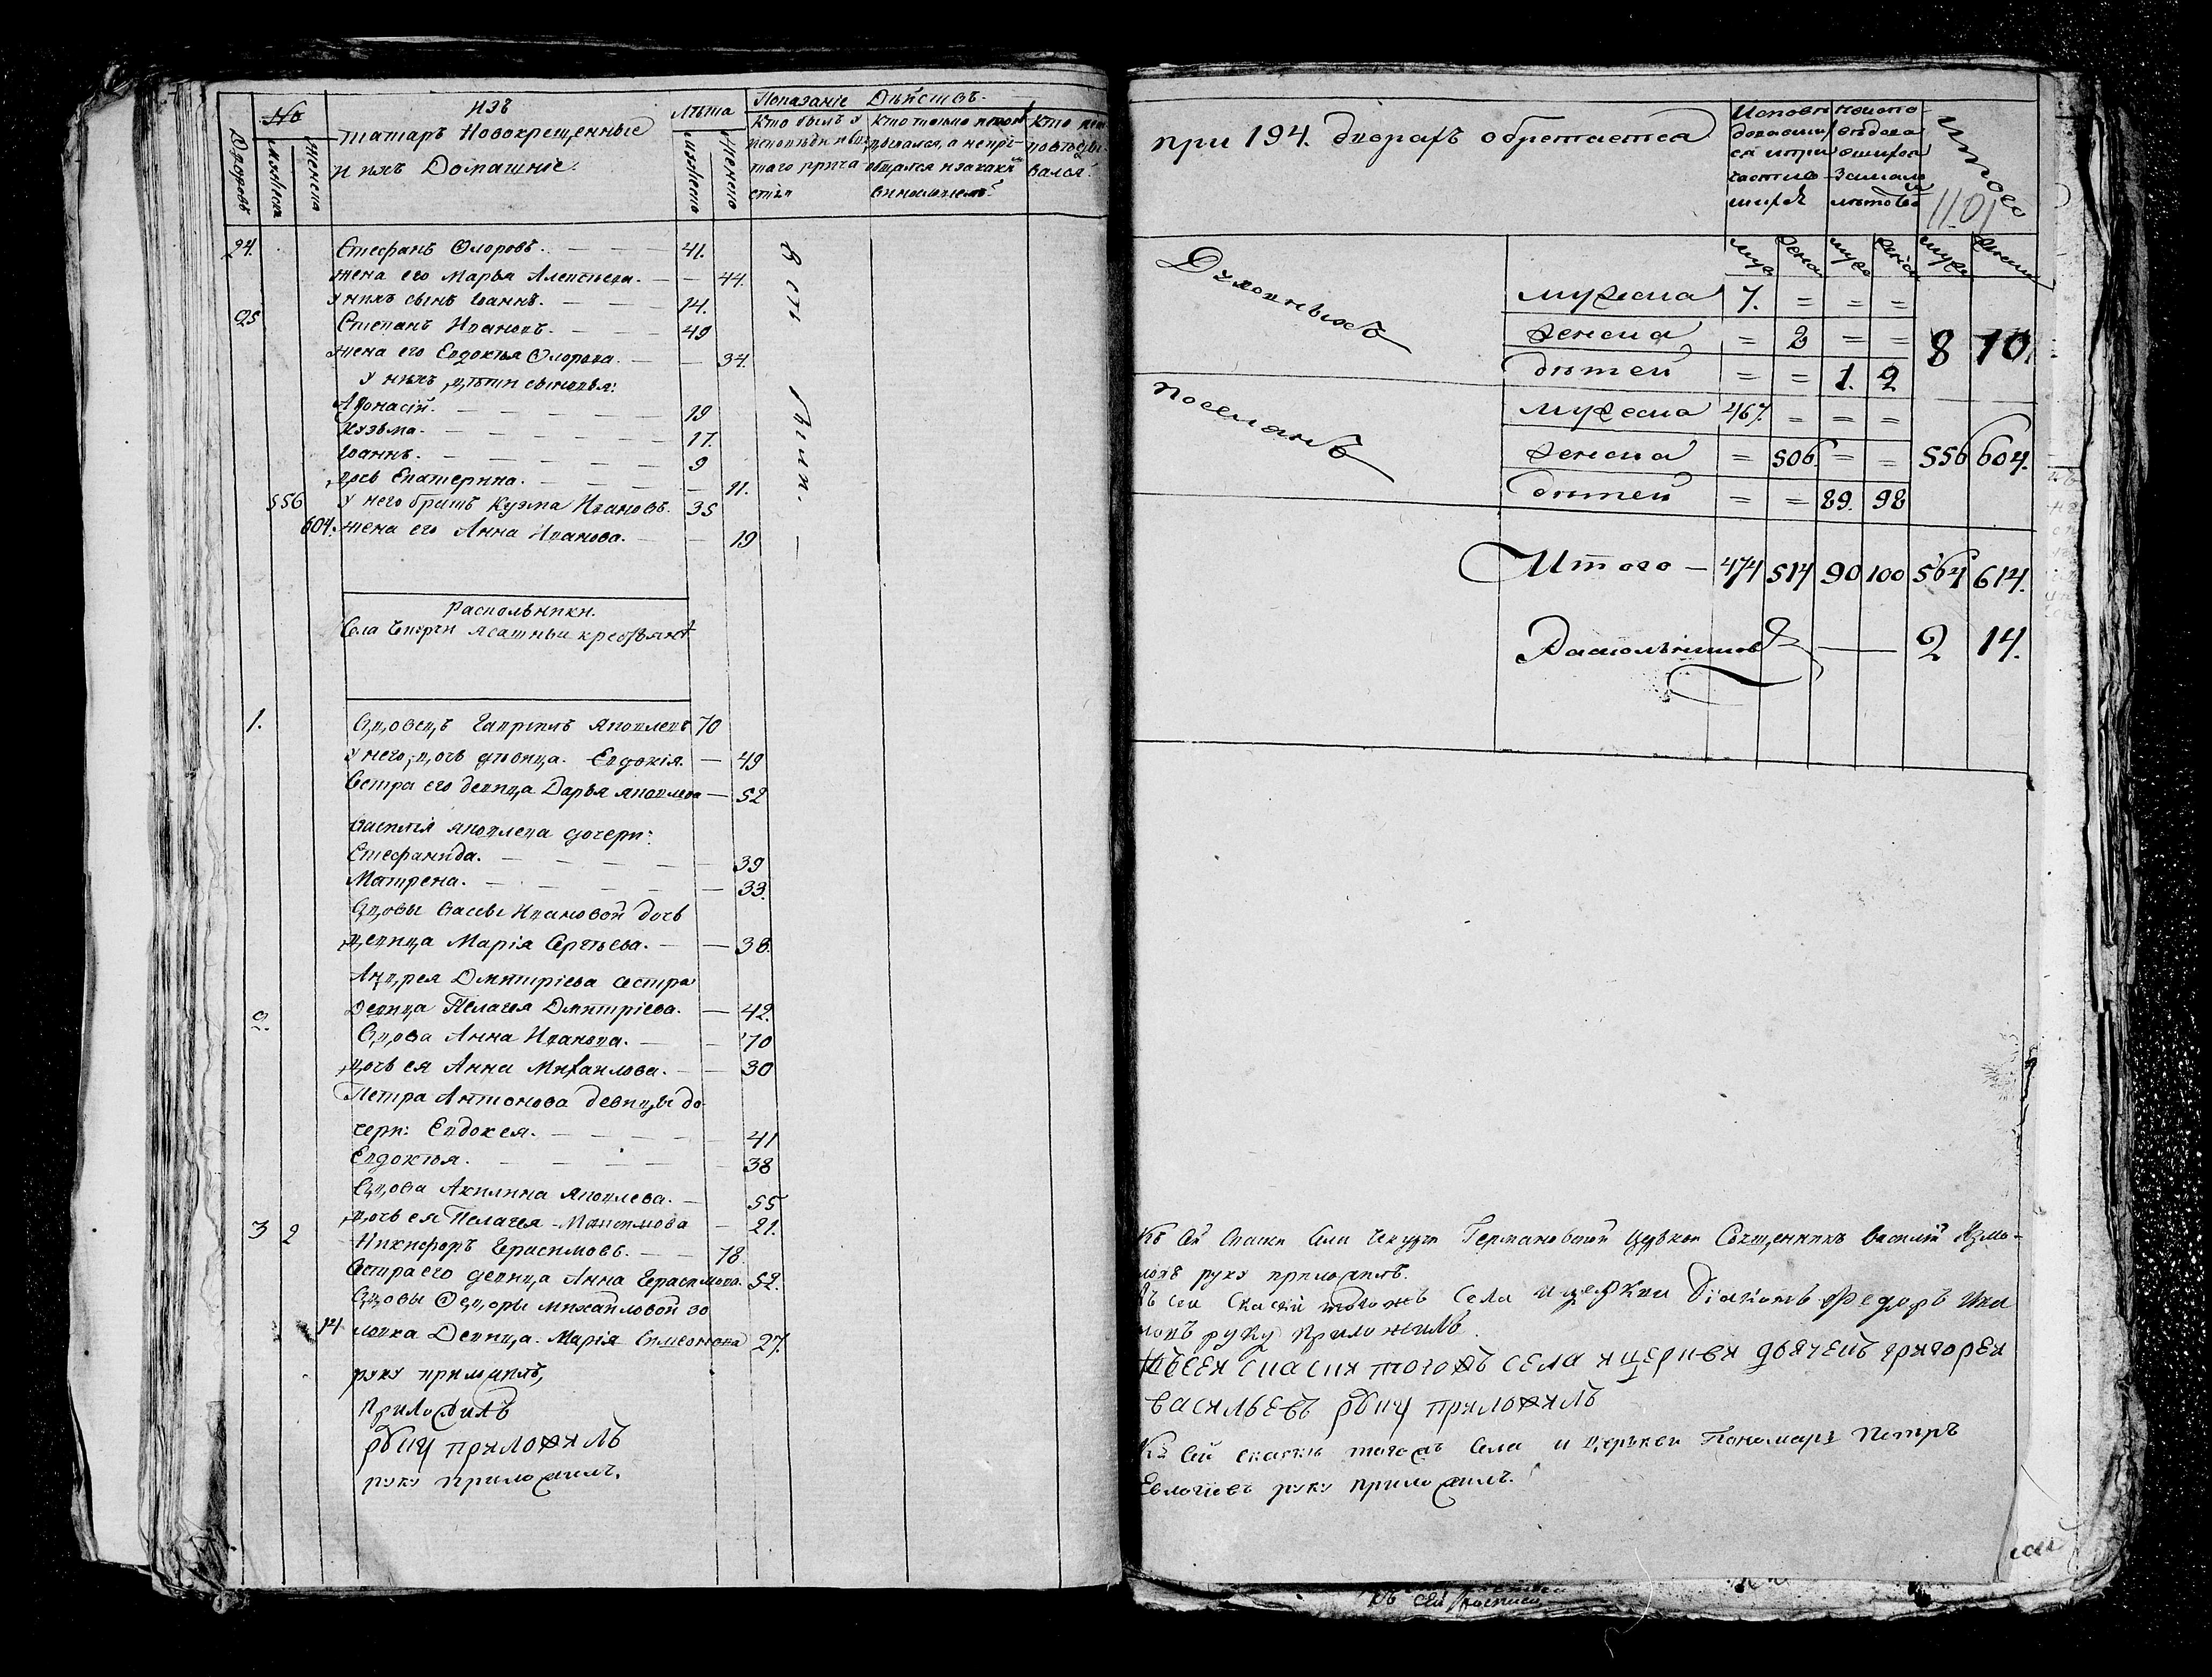 №
изъ
татаръ Новокрещенные
и ихъ Домашніе.
Лѣта
Показаніе Дѣйствъ.
Дворовъ
Мужеска
Женска
мужеско
Женско
Кто былъ у
исповѣди и свя
таго прича
стія
Кто токмо испов
дывался, а непри
общался и за каки
виною
Кто не
повѣды
вался
24. Стефанъ Ѳлоровъ. 41.
жена его Марья Алексѣева. 44.
у нихъ сынъ Іоаннъ. 14.
25 Степанъ Ивановъ. 49
жена его Евдокья Ѳлорова. 34.
у нихъ дѣти сыновья:
Афонасій. 19
Кузьма. 17.
Іоаннъ. 9
дочь Екатерина. 11.
556 У него братъ Кузма Ивановъ. 35
604. жена его Анна Иванова. 19
Раскольники.
Села ясашныя крестьянѣ
1. Вдовецъ Гаврилъ Яковлевъ 70
У него дочь дѣвица Евдокія. 49
Сестра его девица Дарья Яковлева 52
Василія Яковлева дочери:
Стефанида. 39
Матрена. 33.
Вдовы Вассы Ивановой дочь
девица Марія Сергѣева. 38.
Андрея Дмитріева сестра
Девица Пелагея Дмитріева. 42.
2. Вдова Анна Иванова. 70
дочь ея Анна Михаилова. 30
Петра Антонова девицы до
чери: Евдокея. 41
Евдокѣя. 38
Вдова Акилина Яковлева. 55
дочь ея Пелагея Максимова 21.
3 2 Никифоръ Герасимовъ. 18.
Сестра его девица Анна Герасимова. 52.
Вдовы Ѳедоры Михайловой зо
14 ловка Девица Марія Симеонова 27.
руку приложилъ,
приложилъ
руку приложилъ
руку приложилъ.
при 194. дворахъ обретается
Исповѣ
довавши
ся и при
частив
шихся
неиспо
вѣдова
вшихся
за мало
лѣтство
Итого
1101
муж женс муж женс муж женс
Духовныхъ
мужеска 7. = = =
женска = 2 = =
дѣтей = = 1. 2
8 10.
поселянъ
мужеска 467. = = =
женска = 506. = =
дѣтей = = 89. 98
556 604.
Итого — 474 514 90 100 564 614.
Раскольниковъ 2 14.
Къ сей скаски села Германовской церкви Священникъ Василій Изма-
иловъ руку приложилъ.
Къ сей скаски тогожъ села и церкви діаконъ Федоръ Ива
новъ руку приложилъ.
Къ сей скаски тогожъ села и церкви дьячекъ Григорей
Васильевъ руку приложилъ
Къ сей скаскѣ тогожъ села и церкви Пономарь Петръ
Евлогіевъ руку приложилъ.
Къ сей росписи